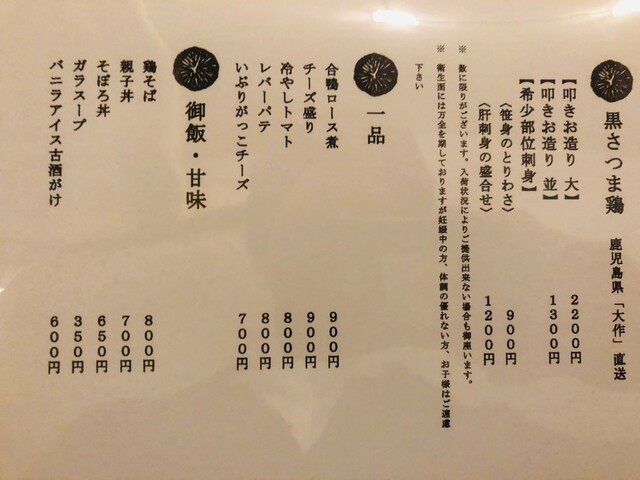 黒さつま鶏 鹿児島県「大作」直送
【叩きお造り 大】 2200円
【叩きお造り 並】 1300円
【希少部位刺身】
〈笹身のとりわさ〉 900円
〈肝刺身の盛合せ〉 1200円
※ 数に限りがございます。入荷状況によりご提供出来ない場合も御座います。
※ 衛生面には万全を期しておりますが妊娠中の方、体調の優れない方、お子様はご遠慮
下さい
一品
合鴨ロース煮 900円
チーズ盛り 900円
冷やしトマト 800円
レバーパテ 800円
いぶりがっこチーズ 700円
御飯・甘味
鶏そば 800円
親子丼 700円
そぼろ丼 650円
ガラスープ 350円
バニラアイス古酒がけ 600円